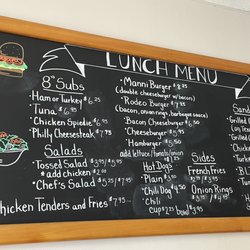 LUNCH MENU
8" Subs
• Ham or Turkey $6.25
• Tuna $6.
• Chicken Spiedie $6.
• Philly Cheesesteak $7.
Salads
• Tossed Salad $3.95/$5.95
+ add chicken $2.00
• Chef's Salad $5.25/$7.95
Chicken Tenders and Fries $7.95
• Manni Burger $8.25
(double cheeseburger w/bacon)
• Rodeo Burger $7.95
(bacon, onion rings, barbeque sauce)
• Bacon Cheeseburger
• Cheeseburger $5.
• Hamburger $
add lettuce/tomato/onion
Hot Dogs
• Plain $3.
• Chili Dog $4.
• Chili
Cup $2.25 bowl
Sides
French Fries
Onion Rings
Sand
• Grilled
• Grilled
• Tuna
• BL